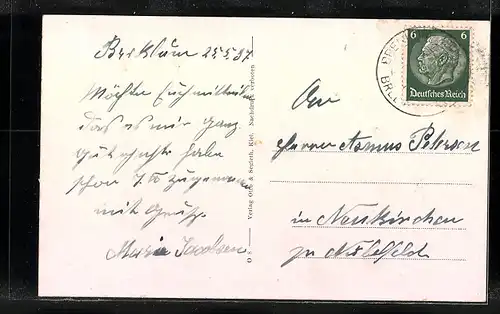 Breklum 25.5.37
Möchte Euch mitteilen
das es mir ganz
gut geht habe
schon 7 tt zugenommen
mit Gruß
Marie Jacobsen
Verlag Otto & Segleth, Kiel. Nachdruck verboten
6 6
Deutsches Reich
BREK
An
Asmus Petersen
in Neukirchen